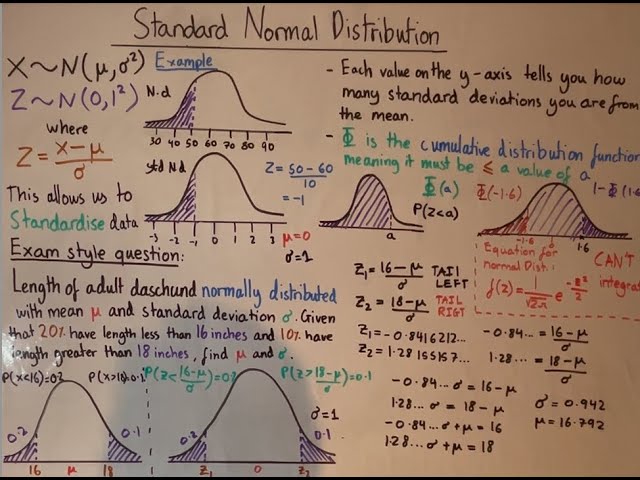 Standard Normal Distribution
X~N(μ,σ²)
Z~N(0,1²)
where
Z = x-μ/σ
This allows us to
Standardise data
Example
N.d
30 40 50 60 70 80 90
std N.d
Z = 50-60/10
= -1
-3 -2 -1 0 1 2 3
μ=0
σ=1
- Each value on the y-axis tells you how
many standard deviations you are from
the mean.
- Φ is the cumulative distribution function
meaning it must be ≤ a value of a
Φ(a)
P(Z<a)
a
Φ(-1.6)
1-Φ(1.6
-1.6
0
1.6
Equation for
normal Dist:
f(z) = 1/√2π e^-z²/2
CAN'T
integrat
Exam style question:
Length of adult daschund normally distributed
with mean μ and standard deviation σ. Given
that 20% have length less than 16 inches and 10% have
length greater than 18 inches, find μ and σ.
P(x<16)=0.2
P(x>18)=0.1
0.2
0.1
16 μ 18
P(Z<16-μ/σ)=0.2
P(Z>18-μ/σ)=0.1
σ=1
0.2
0.1
Z₁ 0 Z₂
Z₁ = 16-μ/σ TAIL LEFT
Z₂ = 18-μ/σ TAIL RIGT
Z₁ = -0.8416212...
Z₂ = 1.28155157...
-0.84... = 16-μ/σ
1.28... = 18-μ/σ
-0.84... σ = 16-μ
1.28... σ = 18-μ
-0.84... σ + μ = 16
1.28... σ + μ = 18
σ = 0.942
μ = 16.792